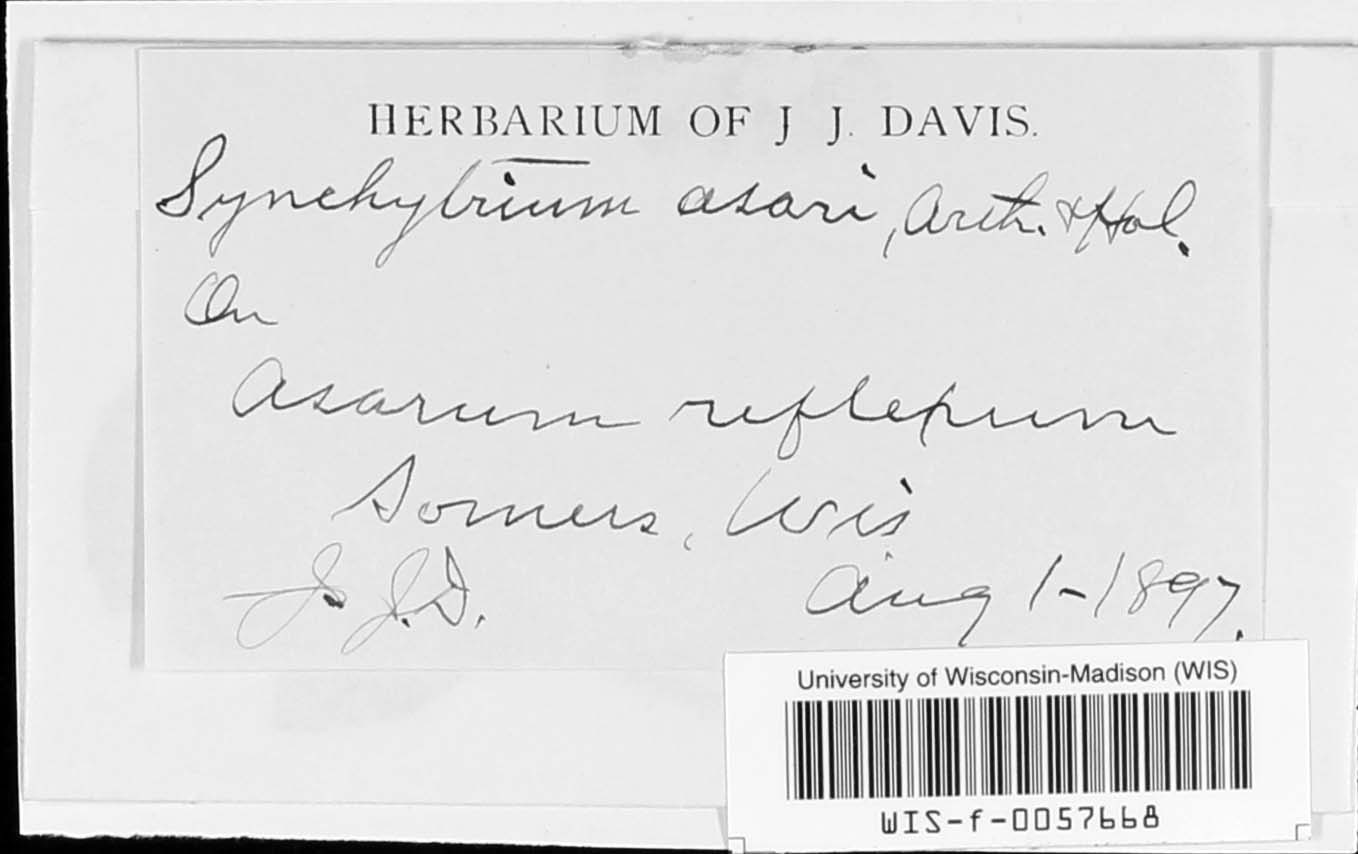 HERBARIUM OF J. J. DAVIS.
Synchytrium asari, Arth. & Hol.
On
Asarum reflexum
Somers, Wis
J. J. D.
Aug 1-1897.
University of Wisconsin-Madison (WIS)
WIS-f-0057668